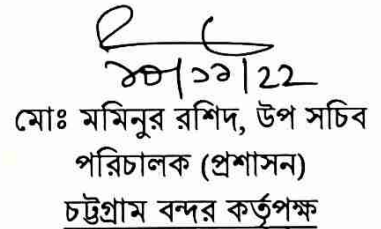 ১০/১১/২২
মোঃ মমিনুর রশিদ, উপ সচিব
পরিচালক (প্রশাসন)
চট্টগ্রাম বন্দর কর্তৃপক্ষ